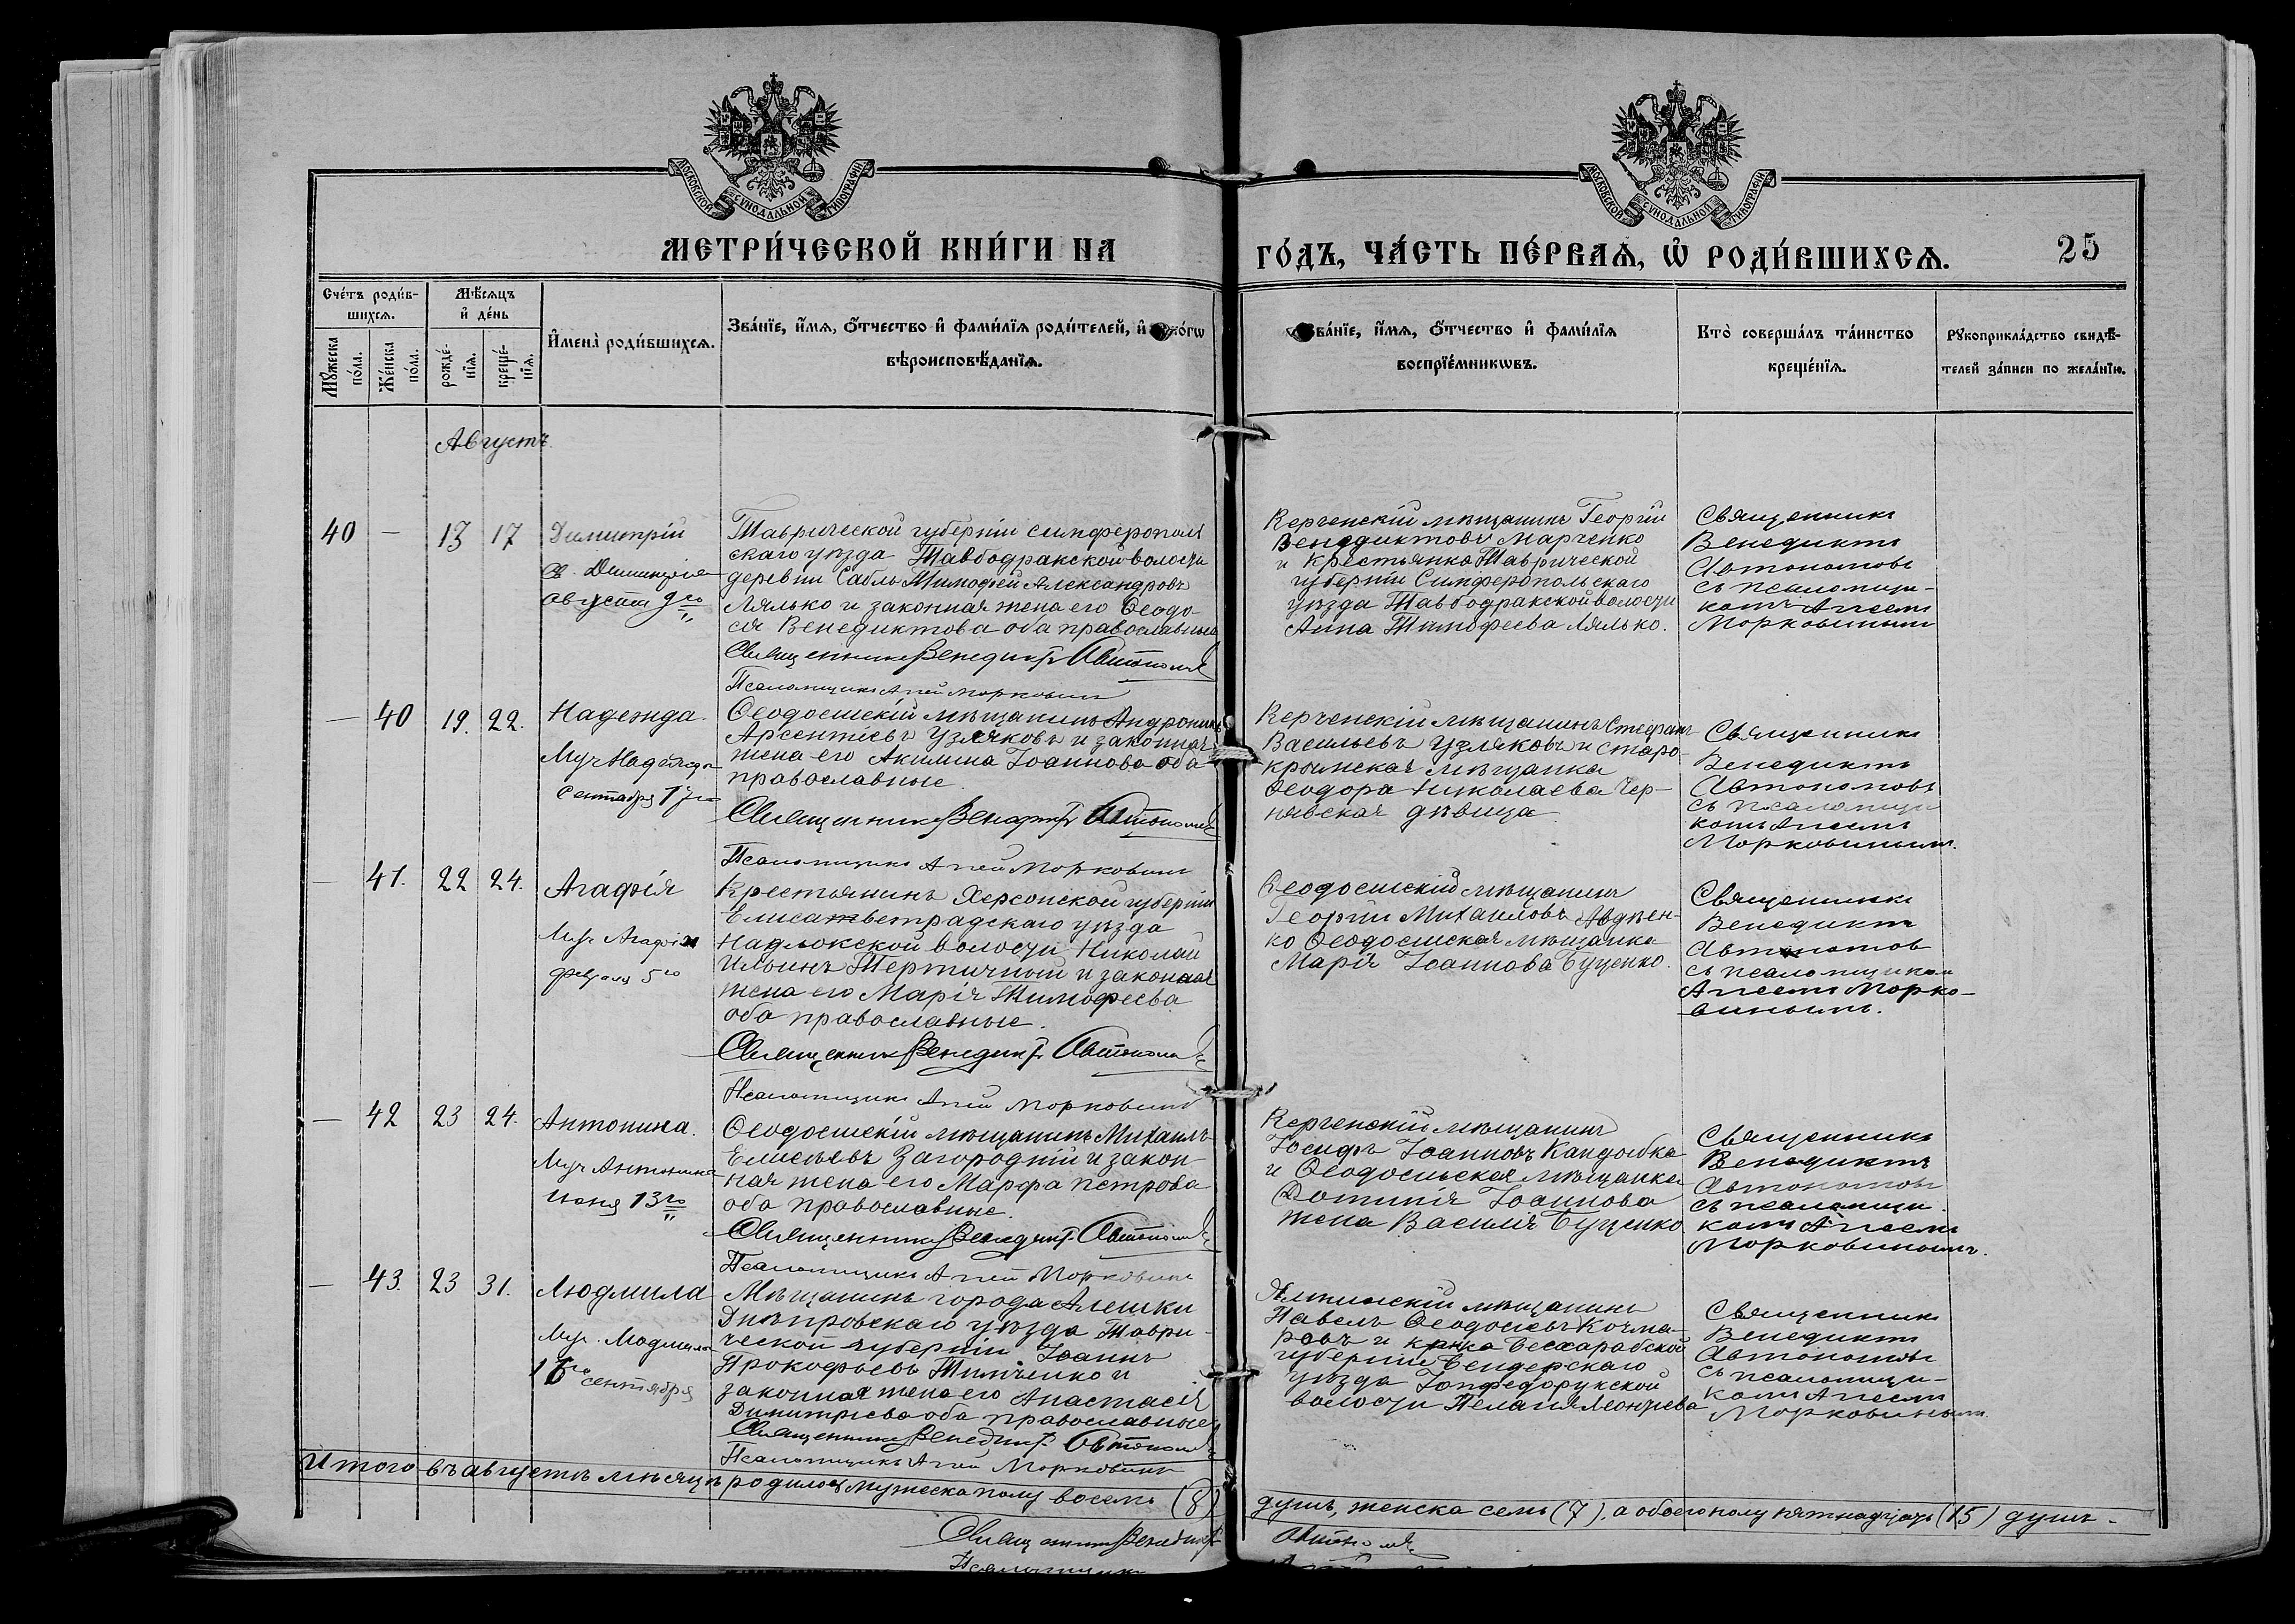 МОСКОВСКОЙ СУНОДАЛЬНОЙ ТИПОГРАФІИ
МОСКОВСКОЙ СУНОДАЛЬНОЙ ТИПОГРАФІИ
МЕТРИ́ЧЕСКОЙ КНИ́ГИ НА
ГО́ДЪ, ЧА́СТЬ ПЕ́РВАѦ, Ѡ҆ РОДИ́ВШИХСѦ.
25
Сче́тъ роди́в-
шихсѧ.
Мѣ́сѧцъ
и҆ де́нь
И҆мена̀ роди́вшихсѧ.
Зва́нїе, и҆́мѧ, ѻ҆́тчество и҆ фами́лїѧ роди́телей, и҆
вѣроисповѣ́данїѧ.
Мꙋ́жеска
по́ла.
Же́нска
по́ла.
рожде́-
нїѧ.
креще́-
нїѧ.
ва́нїе, и҆́мѧ, ѻ҆́тчество и҆ фами́лїѧ
воспрїе́мникѡвъ.
Кто̀ соверша́лъ та́инство
креще́нїѧ.
Рꙋкоприкла́дство свидѣ́-
телей за́писи по жела́нїю.
Августъ.
40 — 13 17 Димитрій
Св. Димитрія
августа 9го
Таврической губерніи Симферополь
скаго уѣзда Тавбодракской волости
деревни Сабль Тимофей Александровъ
Лялько и законная жена его Ѳеодо-
сія Венедиктова оба православные
Священникъ Венедиктъ Автономовъ
Псаломщикъ Агей Морковинъ
Керченскій мѣщанинъ Георгій
Венедиктовъ Марченко
и крестьянка Таврической
губерніи Симферопольскаго
уѣзда Тавбодракской волости
Анна Тимофеева Лялько.
Священникъ
Венедиктъ
Автономовъ
съ псаломщи-
комъ Агеемъ
Морковинымъ
— 40 19. 22. Надежда.
Муч Надежда
Сентября 17го
Ѳеодосійскій мѣщанинъ Андроникъ
Арсентіевъ Узляковъ и законная
жена его Акилина Іоаннова оба
православные.
Священникъ Венедиктъ Автономовъ
Псаломщикъ Агей Морковинъ
Керченскій мѣщанинъ Стефанъ
Васильевъ Узляковъ и Старо-
крымская мѣщанка
Ѳеодора Николаева Чер-
нявская дѣвица.
Священникъ
Венедиктъ
Автономовъ
съ псаломщи
комъ Агеемъ
Морковинымъ.
— 41. 22 24. Агафія
Муч Агафія
февраля 5го
Крестьянинъ Херсонской губерніи
Елисаветградскаго уѣзда
Надлокской волости Николай
Ильинъ Тертичный и законная
жена его Марія Тимофеева
оба православные.
Священникъ Венедиктъ Автономовъ
Псаломщикъ Агей Морковинъ
Ѳеодосійскій мѣщанинъ
Георгій Михаиловъ Авдѣен-
ко Ѳеодосійская мѣщанка
Марія Іоаннова Буценко.
Священникъ
Венедиктъ
Автономов
съ псаломщикомъ
Агеемъ Морко-
винымъ.
— 42 23 24. Антонина.
Муч Антонина
Іюня 13го
Ѳеодосійскій мѣщанинъ Михаилъ
Елисѣевъ Загородній и закон-
ная жена его Марфа Петрова
оба православные.
Священникъ Венедиктъ Автономовъ
Псаломщикъ Агей Морковинъ
Керченскій мѣщанинъ
Іосифъ Іоанновъ Кандыбка
и Ѳеодосійская мѣщанка
Домникія Іоаннова
жена Василія Буценко
Священникъ
Венедиктъ
Автономовъ
съ псаломщи-
комъ Агеемъ
Морковинымъ.
— 43. 23 31. Людмила
Муч. Людмила
16го сентября
Мѣщанинъ города Алешки
Днѣпровскаго уѣзда Таври-
ческой губерніи Іоаннъ
Прокофьевъ Тимченко и
законная жена его Анастасія
Димитріева оба православные
Священникъ Венедиктъ Автономовъ
Псаломщикъ Агей Морковинъ
Ялтинскій мѣщанинъ
Павелъ Ѳеодосіевъ Кочма-
ровъ и кр-нка Бессарабской
губерніи Бендерскаго
уѣзда
волости Пелагія Леонтіева
Священникъ
Венедиктъ
Автономовъ
съ псаломщи-
комъ Агеемъ
Морковинымъ.
Итого въ августѣ мѣсяцѣ родилось мужеска полу восемь (8)
душъ, женска семь (7), а обоего полу пятнадцать (15) душъ.
Священникъ Венедиктъ
Автономовъ
Псаломщикъ